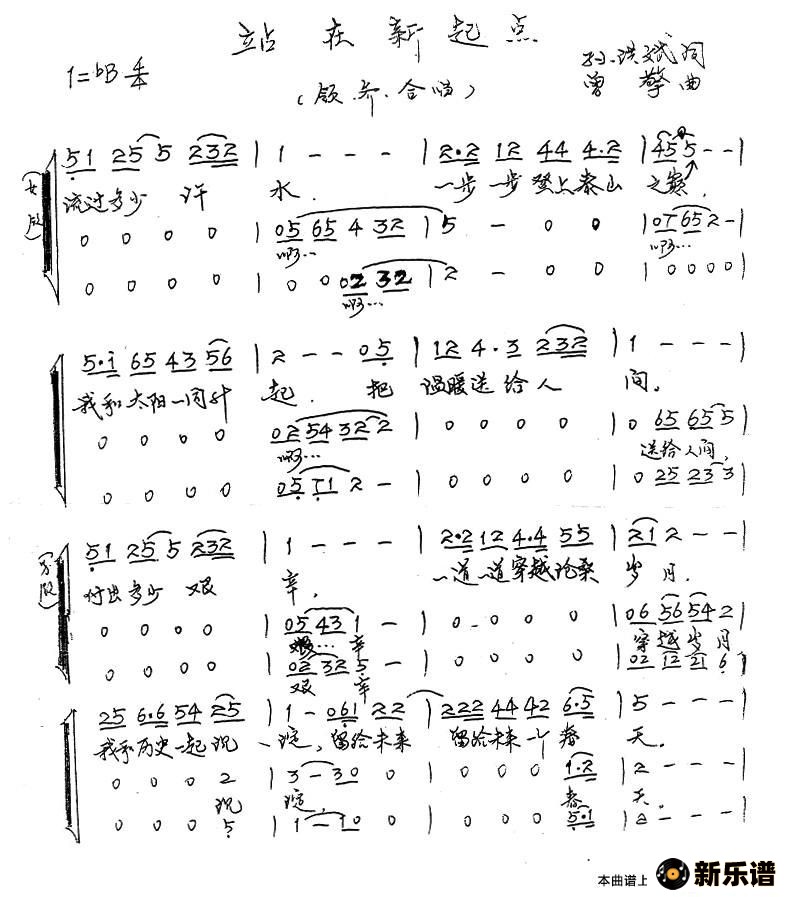 站在新起点
1=bB 4/4
(领、齐、合唱)
孙洪斌词
曾擎曲
(女领)
51 25 5 232 | 1 - - - | 2·2 12 44 4·2 | 455 - - |
流过多少 许 水. 一步一步登上泰山 之巅.
0 0 0 0 | 05 65 4 32 | 5 - 0 0 | 07 65 2 - |
啊… 啊…
0 0 0 0 | 0 0 02 32 | 2 - 0 0 | 0 0 0 0 |
啊…
5·i 65 43 56 | 2 - - 05 | 12 4·3 232 | 1 - - - |
我和太阳一同升 起. 把 温暖送给人 间。
0 0 0 0 | 02 54 32 2 | 0 0 0 0 | 0 65 65 5 |
啊… 送给人间,
0 0 0 0 | 05 71 2 - | 0 0 0 0 | 0 25 23 3 |
(男领)
51 25 5 232 | 1 - - - | 2·2 12 4·4 55 | 21 2 - - |
付出多少 艰 辛. 一道一道穿越沧桑 岁月.
0 0 0 0 | 05 43 1 - | 0 0 0 0 | 06 56 54 2 |
艰… 辛 穿越岁月
0 0 0 0 | 02 32 5 - | 0 0 0 0 | 02 12 21 6 |
艰 辛
25 6·6 54 25 | 1 - 061 22 | 222 44 42 6·5 | 5 - - - |
我和历史一起沉 淀, 留给未来 留给未来一个春 天.
0 0 0 2 | 3 - 30 0 | 0 0 0 1·2 | 2 - - - |
沉 淀, 春 天.
0 0 0 5 | 1 - 10 0 | 0 0 0 5·1 | 2 - - - |
本曲谱上 新乐谱